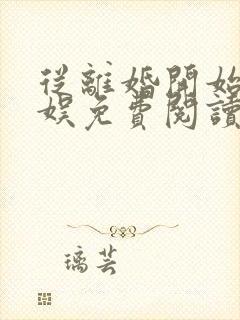 從離婚開始
娛免費閱讀
璃芸